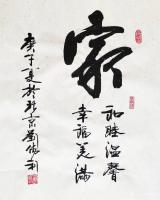 家
和睦温馨
幸福美满
庚子夏於北京刘俊利